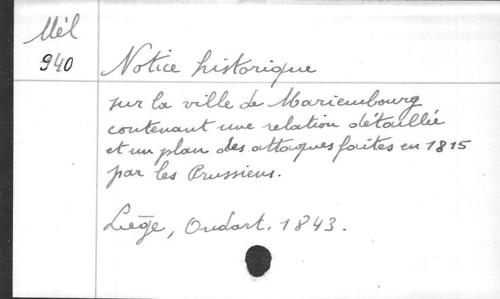 Mél
940
Notice historique
sur la ville de Mariembourg
contenant une relation détaillée
et un plan des attaques faites en 1815
par les Prussiens.
Liège, Oudart. 1843.